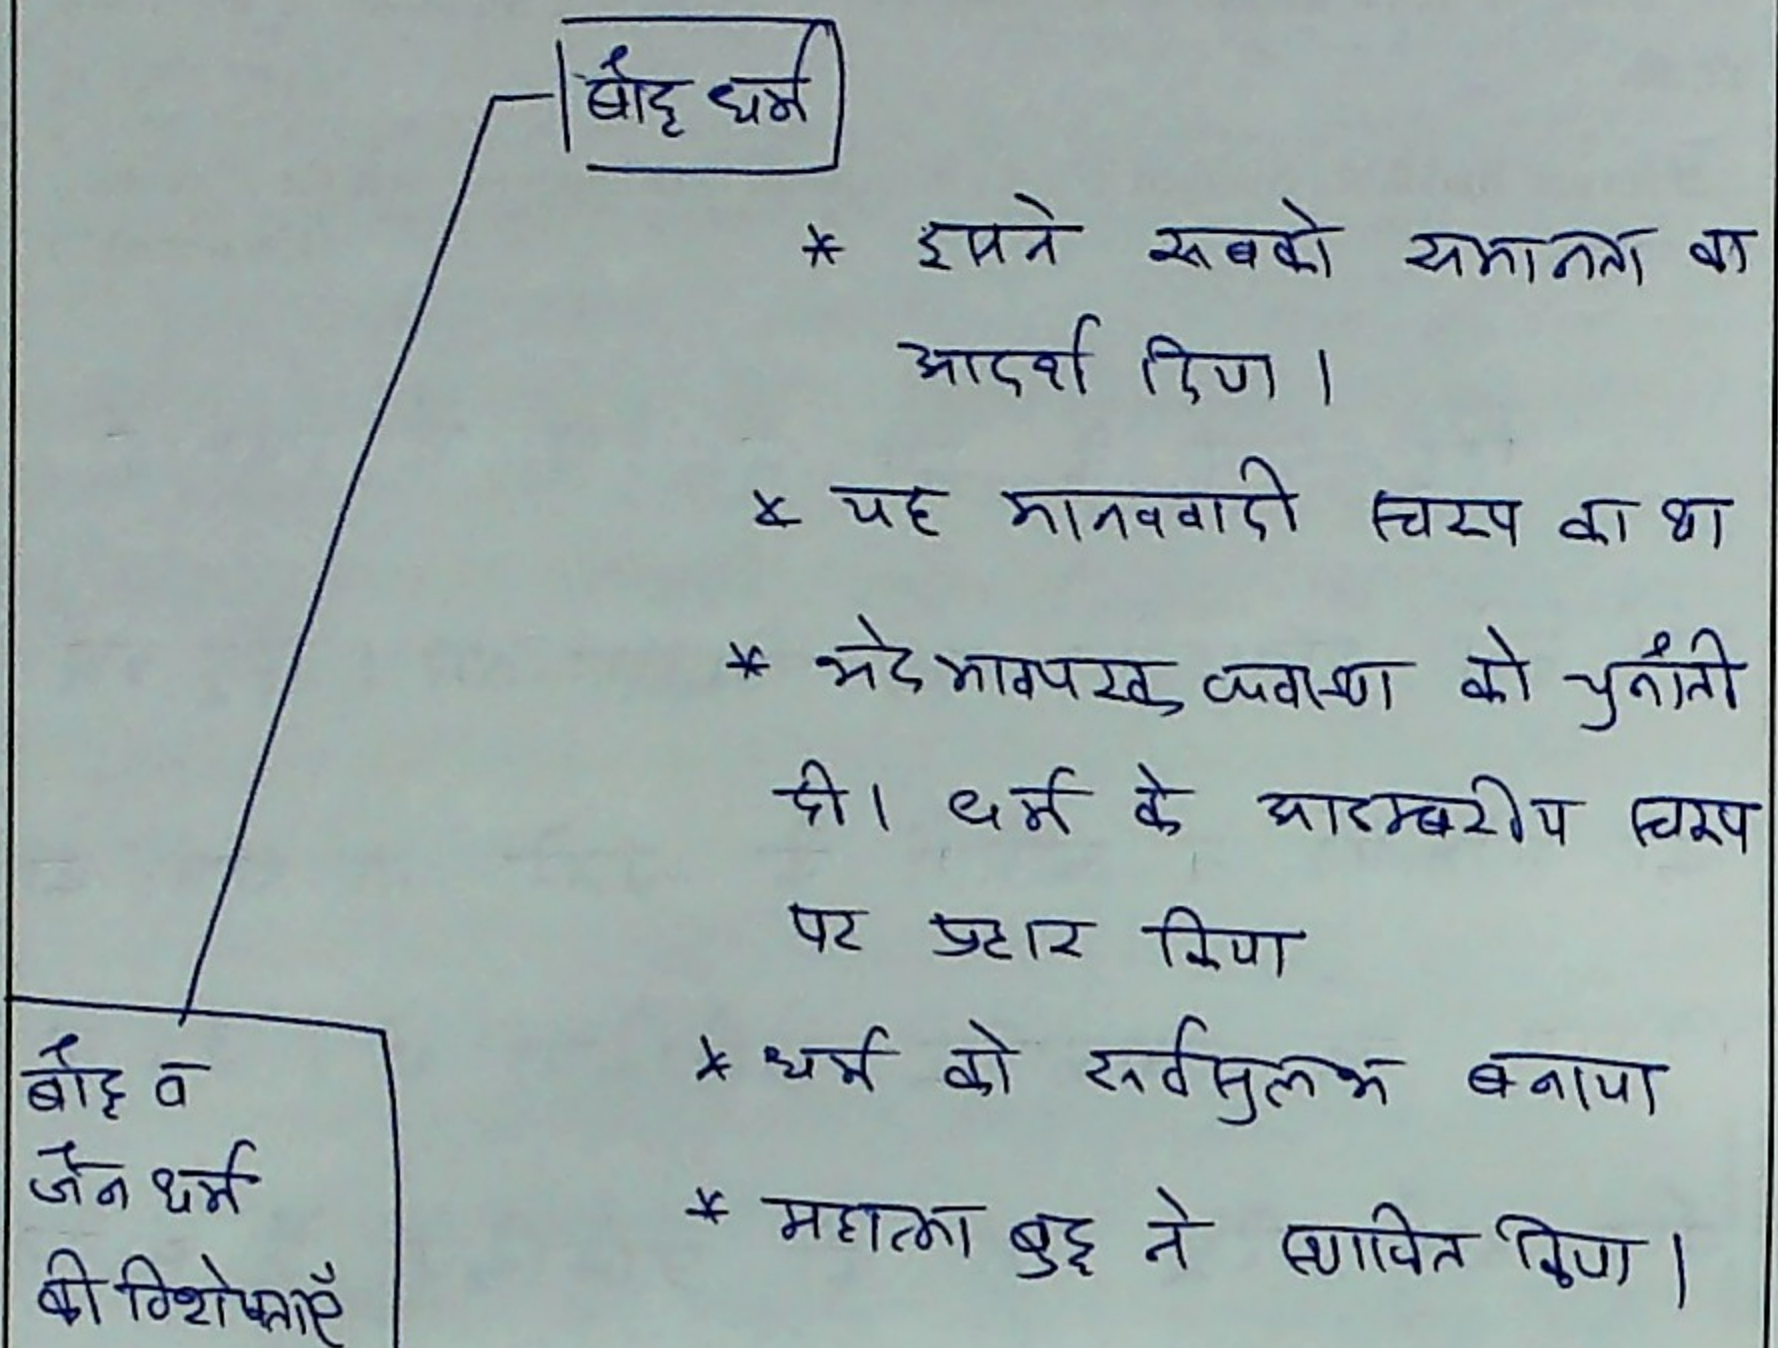 बौद्ध धर्म
* इसने सबको समानता का
आदर्श दिया।
* यह मानववादी स्वरूप का था
* भेदभावपरक व्यवस्था को चुनौती
दी। धर्म के आडम्बरीय स्वरूप
पर प्रहार किया
* धर्म को सर्वसुलभ बनाया
* महात्मा बुद्ध ने स्थापित किया।
बौद्ध व
जैन धर्म
की विशेषताएँ